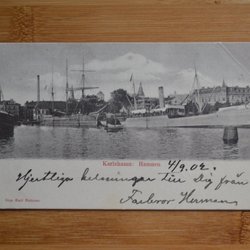 Karlshamn: Hamnen
4/9.02.
Hjertliga helsningar till Dig från
Farbror Herman